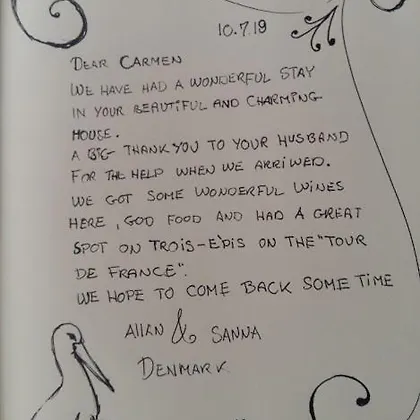 10.7.19
DEAR CARMEN
WE HAVE HAD A WONDERFUL STAY
IN YOUR BEAUTIFUL AND CHARMING
HOUSE.
A BIG THANK YOU TO YOUR HUSBAND
FOR THE HELP WHEN WE ARRIWED.
WE GOT SOME WONDERFUL WINES
HERE, GOD FOOD AND HAD A GREAT
SPOT ON TROIS-EPIS ON THE "TOUR
DE FRANCE".
WE HOPE TO COME BACK SOME TIME
ALLAN & SANNA
DENMARK